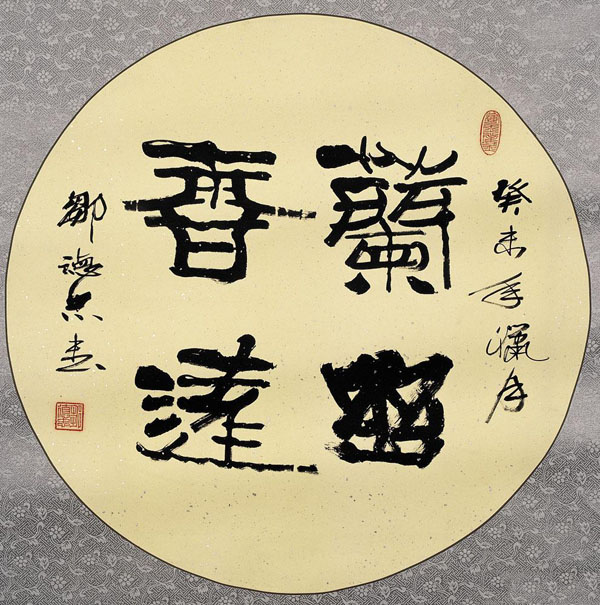 癸未年臘月
蘭幽
香遠
鄒德忠書